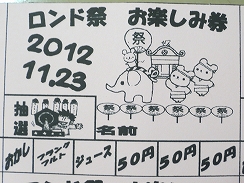 ロンド祭 お楽しみ券
2012
11.23
祭
抽選
祭 祭 祭 祭 祭
名前
おかし フランクフルト ジュース 50円 50円 50円